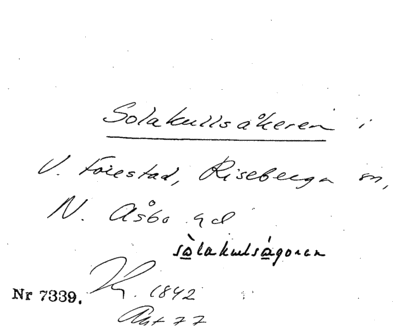 Solakullsåkeren i
V. Forestad, Riseberga sn,
N. Åsbo hd
sòlakulsågoren
Nr 7339.
1842
Akt 77